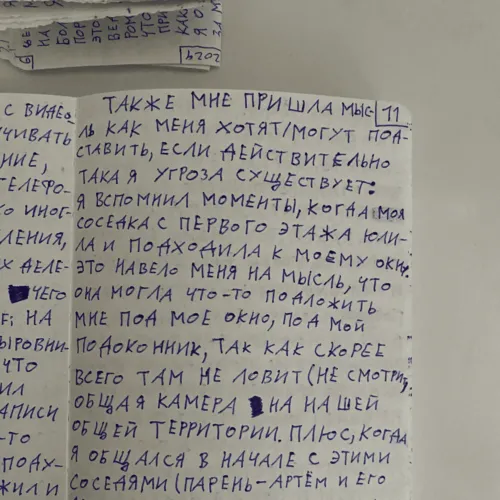 НА
БОЛ
ПОР
ЭТО-
ВЕЛ
РОМ-
ЧТО
ПРИ
КАК
Я О
ЗА М
2024
С ВИДЕО
ЧИВАТЬ
НИЕ,
ТЕЛЕФО-
КО ИНОГ-
ЛЕНИЯ,
Х ДЕЛЕ-
ЧЕГО
НА
ЫРОВНИ-
ЧТО
ИЛ
АПИСИ
-ТО
ПОДХ-
ЖИЛ И
11
ТАКЖЕ МНЕ ПРИШЛА МЫС-
ЛЬ КАК МЕНЯ ХОТЯТ/МОГУТ ПОД-
СТАВИТЬ, ЕСЛИ ДЕЙСТВИТЕЛЬНО
ТАКАЯ УГРОЗА СУЩЕСТВУЕТ:
Я ВСПОМНИЛ МОМЕНТЫ, КОГДА МОЯ
СОСЕДКА С ПЕРВОГО ЭТАЖА ЮЛИ-
ЛА И ПОДХОДИЛА К МОЕМУ ОКНУ.
ЭТО НАВЕЛО МЕНЯ НА МЫСЛЬ, ЧТО
ОНА МОГЛА ЧТО-ТО ПОДЛОЖИТЬ
МНЕ ПОД МОЕ ОКНО, ПОД МОЙ
ПОДОКОННИК, ТАК КАК СКОРЕЕ
ВСЕГО ТАМ НЕ ЛОВИТ (НЕ СМОТРИТ)
ОБЩАЯ КАМЕРА НА НАШЕЙ
ОБЩЕЙ ТЕРРИТОРИИ. ПЛЮС, КОГДА
Я ОБЩАЛСЯ В НАЧАЛЕ С ЭТИМИ
СОСЕДЯМИ (ПАРЕНЬ-АРТЁМ И ЕГО